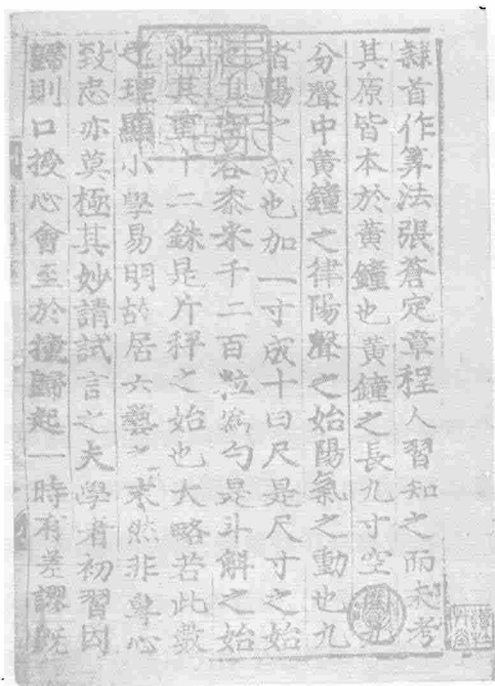 隸首作算法張蒼定章程人習知之而未考
其原皆本於黃鐘也黃鐘之長九寸空九
分聲中黃鐘之律陽聲之始陽氣之動也九
者陽之成也加一寸成十曰尺是尺寸之始
容黍米千二百粒為勺是斗斛之始
也其重十二銖是斤秤之始也大略若此數
之理顯小學易明故居六藝之末然非專心
致志亦莫極其妙請試言之夫學者初習因
歸則口授心會至於撞歸起一時有差謬既